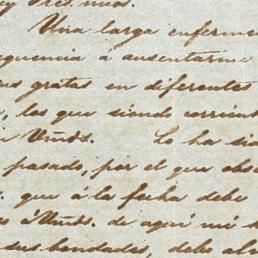 y Sres. mios.
Una larga enferme
quencia á ausentarme
us gratas en diferentes
, las que siendo corrient
Vmds. Lo ha si
pasado, por el que obs
que á la fecha debe
os á Vmds. de aquí mi
sus bondades, debo al